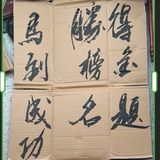 得金題
勝榜名
馬到成功